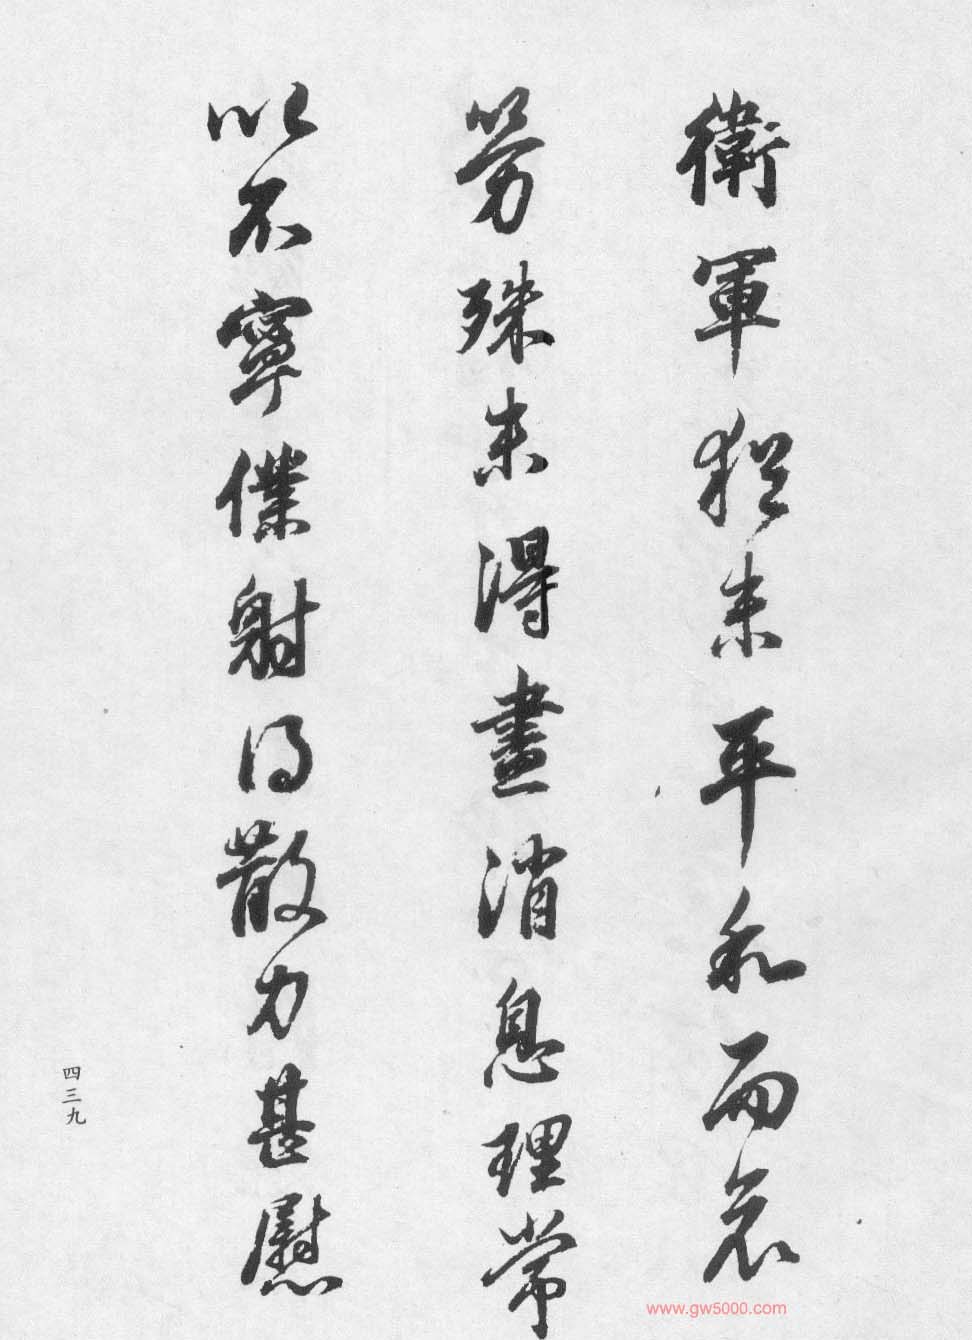 衛軍猶未平和而哀
勞殊未得盡消息理常
以不寧僕射得散力甚慰
四三九
www.gw5000.com